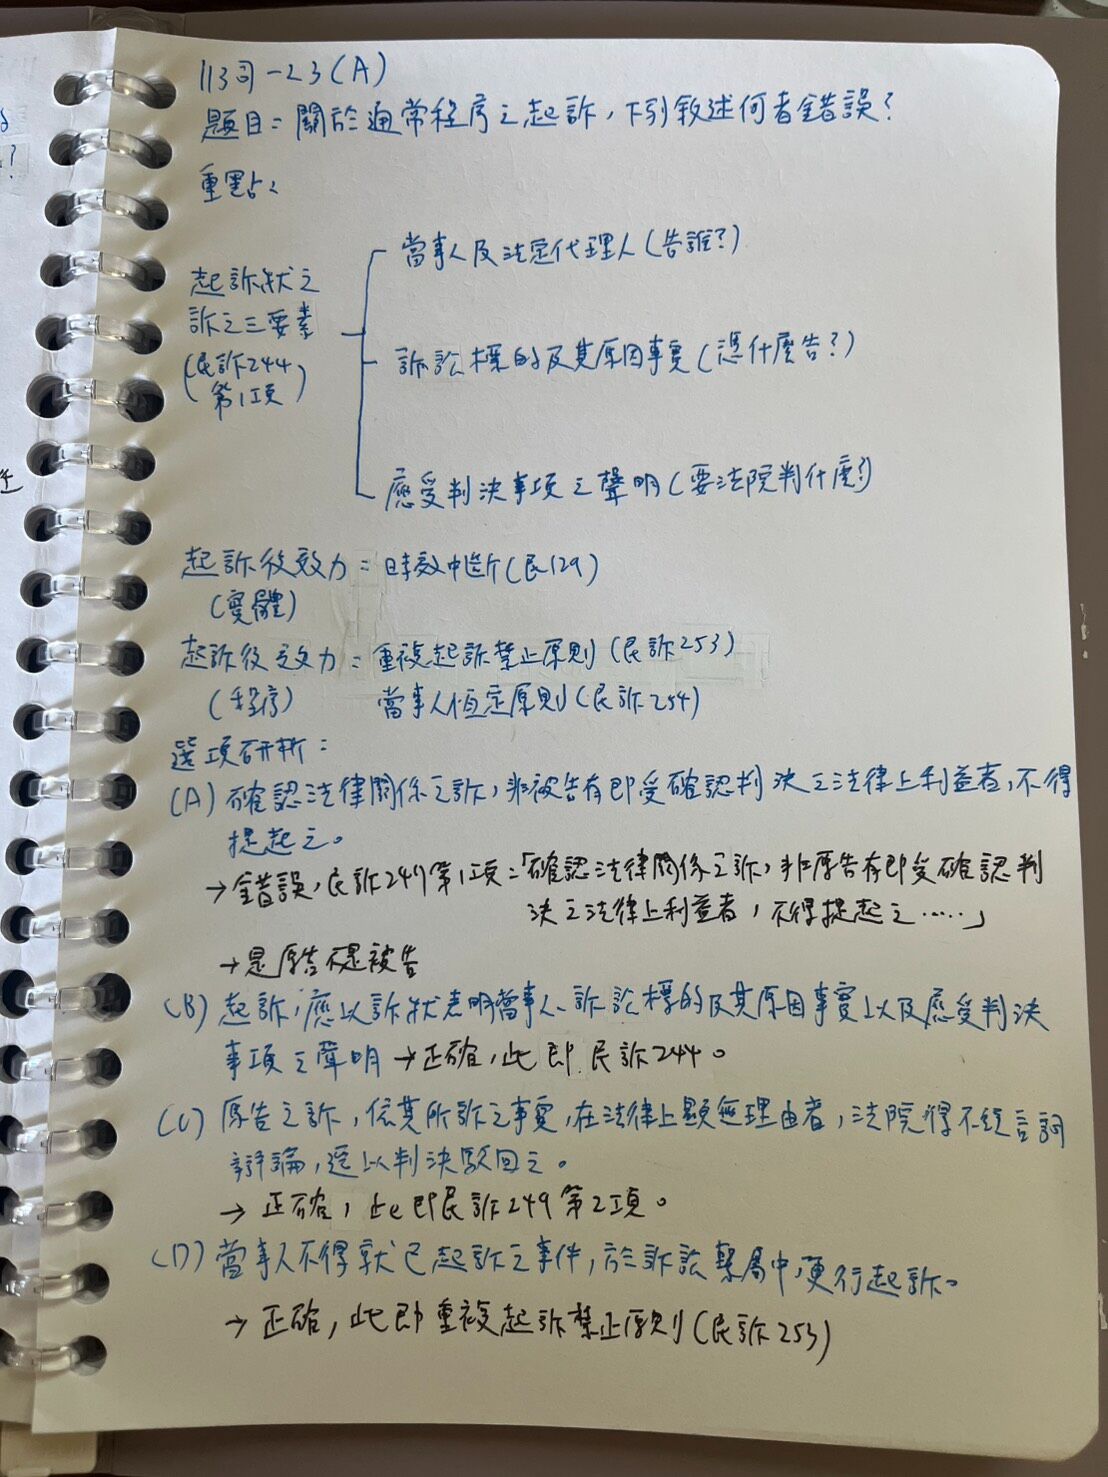 113司-23(A)
題目：關於通常程序之起訴，下列敘述何者錯誤？
重點：
當事人及法定代理人(告誰？)
起訴狀之
訴之三要素
(民訴244
第1項)
訴訟標的及其原因事實(憑什麼告？)
應受判決事項之聲明(要法院判什麼？)
起訴後效力：時效中斷(民129)
(實體)
起訴後效力：重複起訴禁止原則(民訴253)
(程序) 當事人恆定原則(民訴254)
選項研析：
(A)確認法律關係之訴，非被告有即受確認判決之法律上利益者，不得
提起之。
→錯誤，民訴247第1項：「確認法律關係之訴，非原告有即受確認判
決之法律上利益者，不得提起之……」
→是原告不是被告
(B)起訴，應以訴狀表明當事人、訴訟標的及其原因事實以及應受判決
事項之聲明→正確，此即民訴244。
(C)原告之訴，依其所訴之事實，在法律上顯無理由者，法院得不經言詞
辯論，逕以判決駁回之。
→正確，此即民訴249第2項。
(D)當事人不得就已起訴之事件，於訴訟繫屬中，更行起訴。
→正確，此即重複起訴禁止原則(民訴253)
?